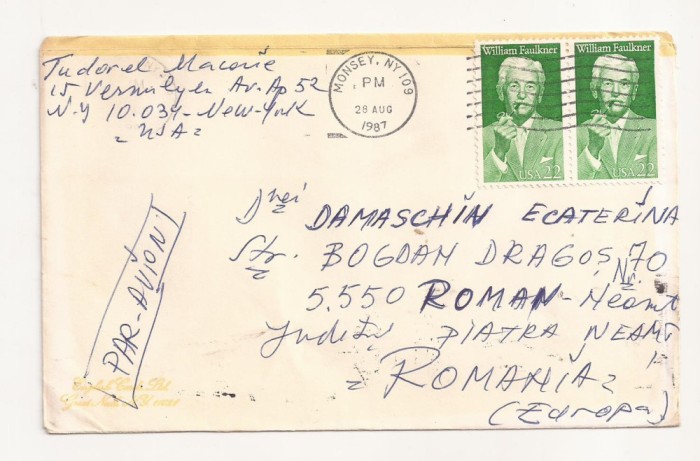 Tudorel Macovie
15 Vermilyea Av. Ap 52
N-Y 10.034 - New-York
"USA"
MONSEY, NY 109
PM
28 AUG
1987
William Faulkner
USA 22
William Faulkner
USA 22
PAR-AVION
Dnei DAMASCHIN ECATERINA
Str. BOGDAN DRAGOȘ Nr. 70
5.550 ROMAN - Neamț
Județ PIATRA NEAMȚ
ROMANIA
(Europa)